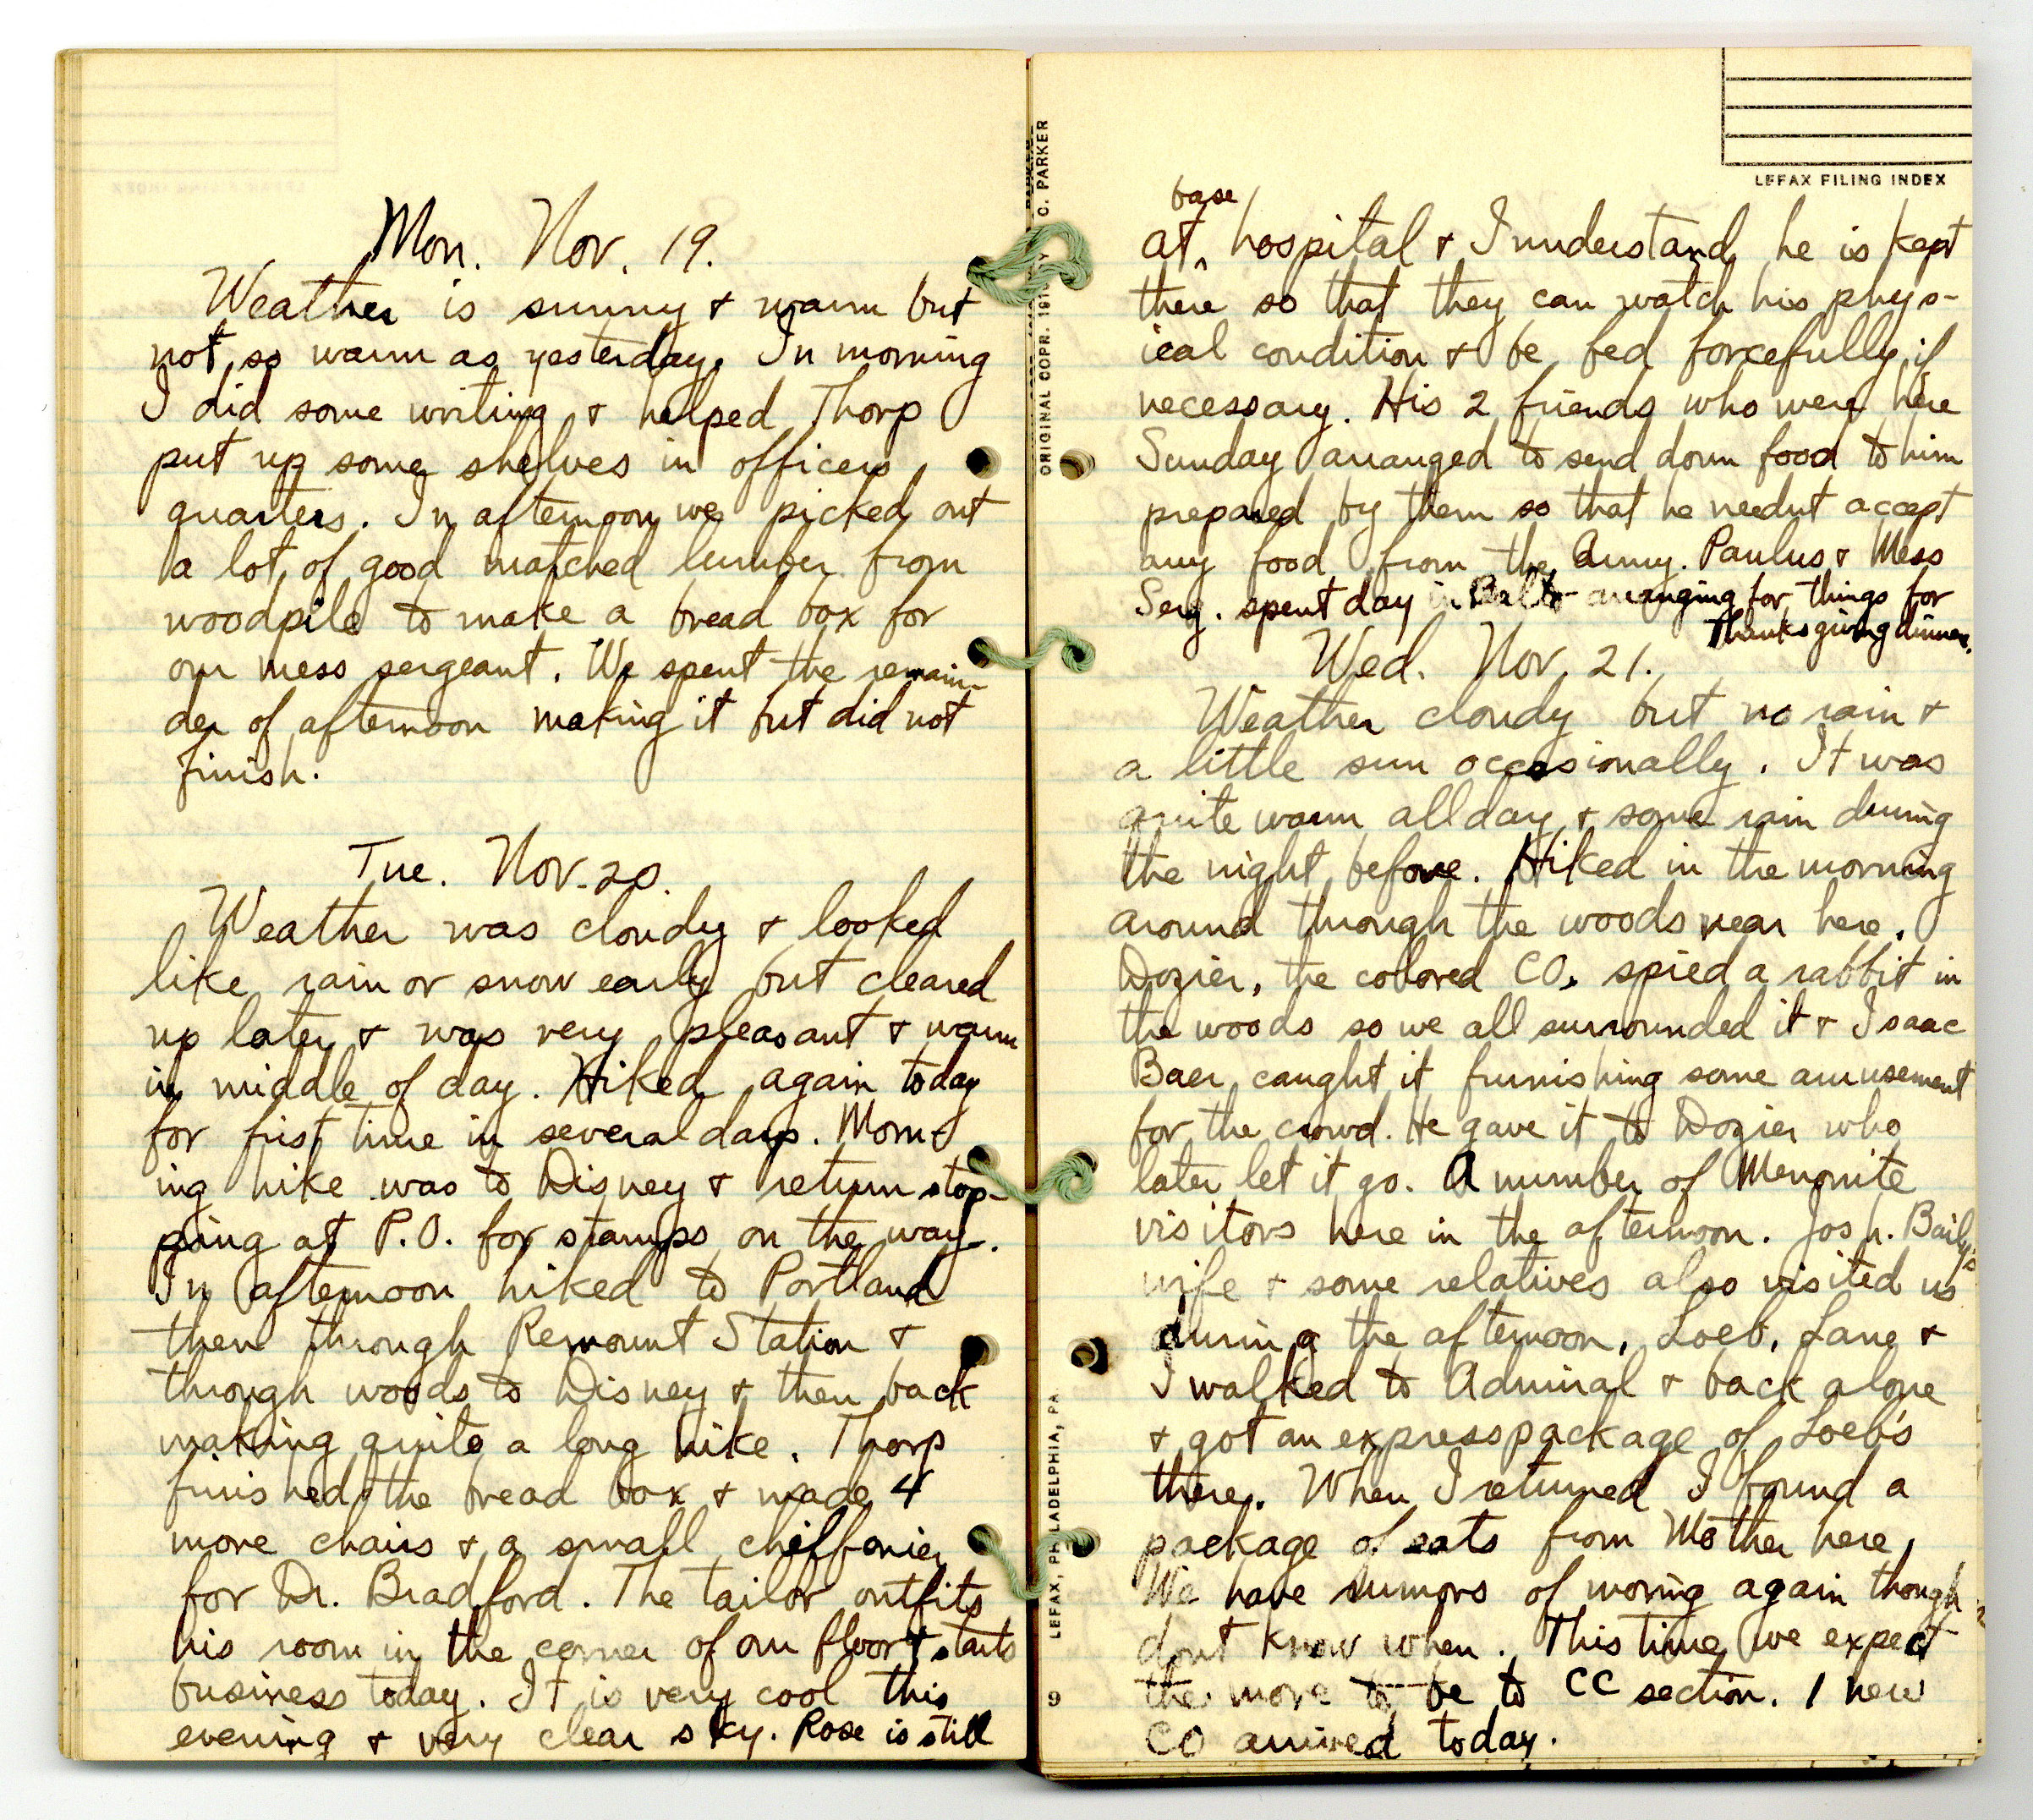 Mon. Nov. 19.
Weather is sunny & warm but
not so warm as yesterday. In morning
I did some writing & helped Thorp
put up some shelves in officers
quarters. In afternoon we picked out
a lot of good matched lumber from
woodpile to make a bread box for
our mess sergeant. We spent the remain-
der of afternoon making it but did not
finish.
Tue. Nov. 20.
Weather was cloudy & looked
like rain or snow early but cleared
up later & was very pleasant & warm
in middle of day. Hiked again today
for first time in several days. Morn-
ing hike was to Disney & return stop-
ping at P.O. for stamps on the way.
In afternoon hiked to Portland
then through Remount Station &
through woods to Disney & then back
making quite a long hike. Thorp
finished the bread box & made 4
more chairs & a small chiffonier
for Dr. Bradford. The tailor outfits
his room in the corner of our floor & starts
business today. It is very cool this
evening & very clear sky. Rose is still
ORIGINAL COPR. 191 BY C. PARKER
LEFAX, PHILADELPHIA, PA
9
LEFAX FILING INDEX
base
at ^ hospital & I understand he is kept
there so that they can watch his phys-
ical condition & be fed forcefully if
necessary. His 2 friends who were here
Sunday arranged to send down food to him
prepared by them so that he neednt accept
any food from the Army. Paulus & Mess
Serg. spent day in Balto arranging for things for
Thanksgiving dinner.
Wed. Nov. 21.
Weather cloudy but no rain &
a little sun occasionally. It was
quite warm all day & some rain during
the night before. Hiked in the morning
around through the woods near here.
Dozier, the colored CO. spied a rabbit in
the woods so we all surrounded it & Isaac
Baer caught it furnishing some amusement
for the crowd. He gave it to Dozier who
later let it go. A number of Menonite
visitors here in the afternoon. Josh. Baily's
wife & some relatives also visited us
during the afternoon. Loeb, Lang &
I walked to Admiral & back alone
& got an express package of Loeb's
there. When I returned I found a
package of eats from Mother here.
We have rumors of moving again though
dont know when. This time we expect
the move to be to CC section. 1 new
CO arrived today.